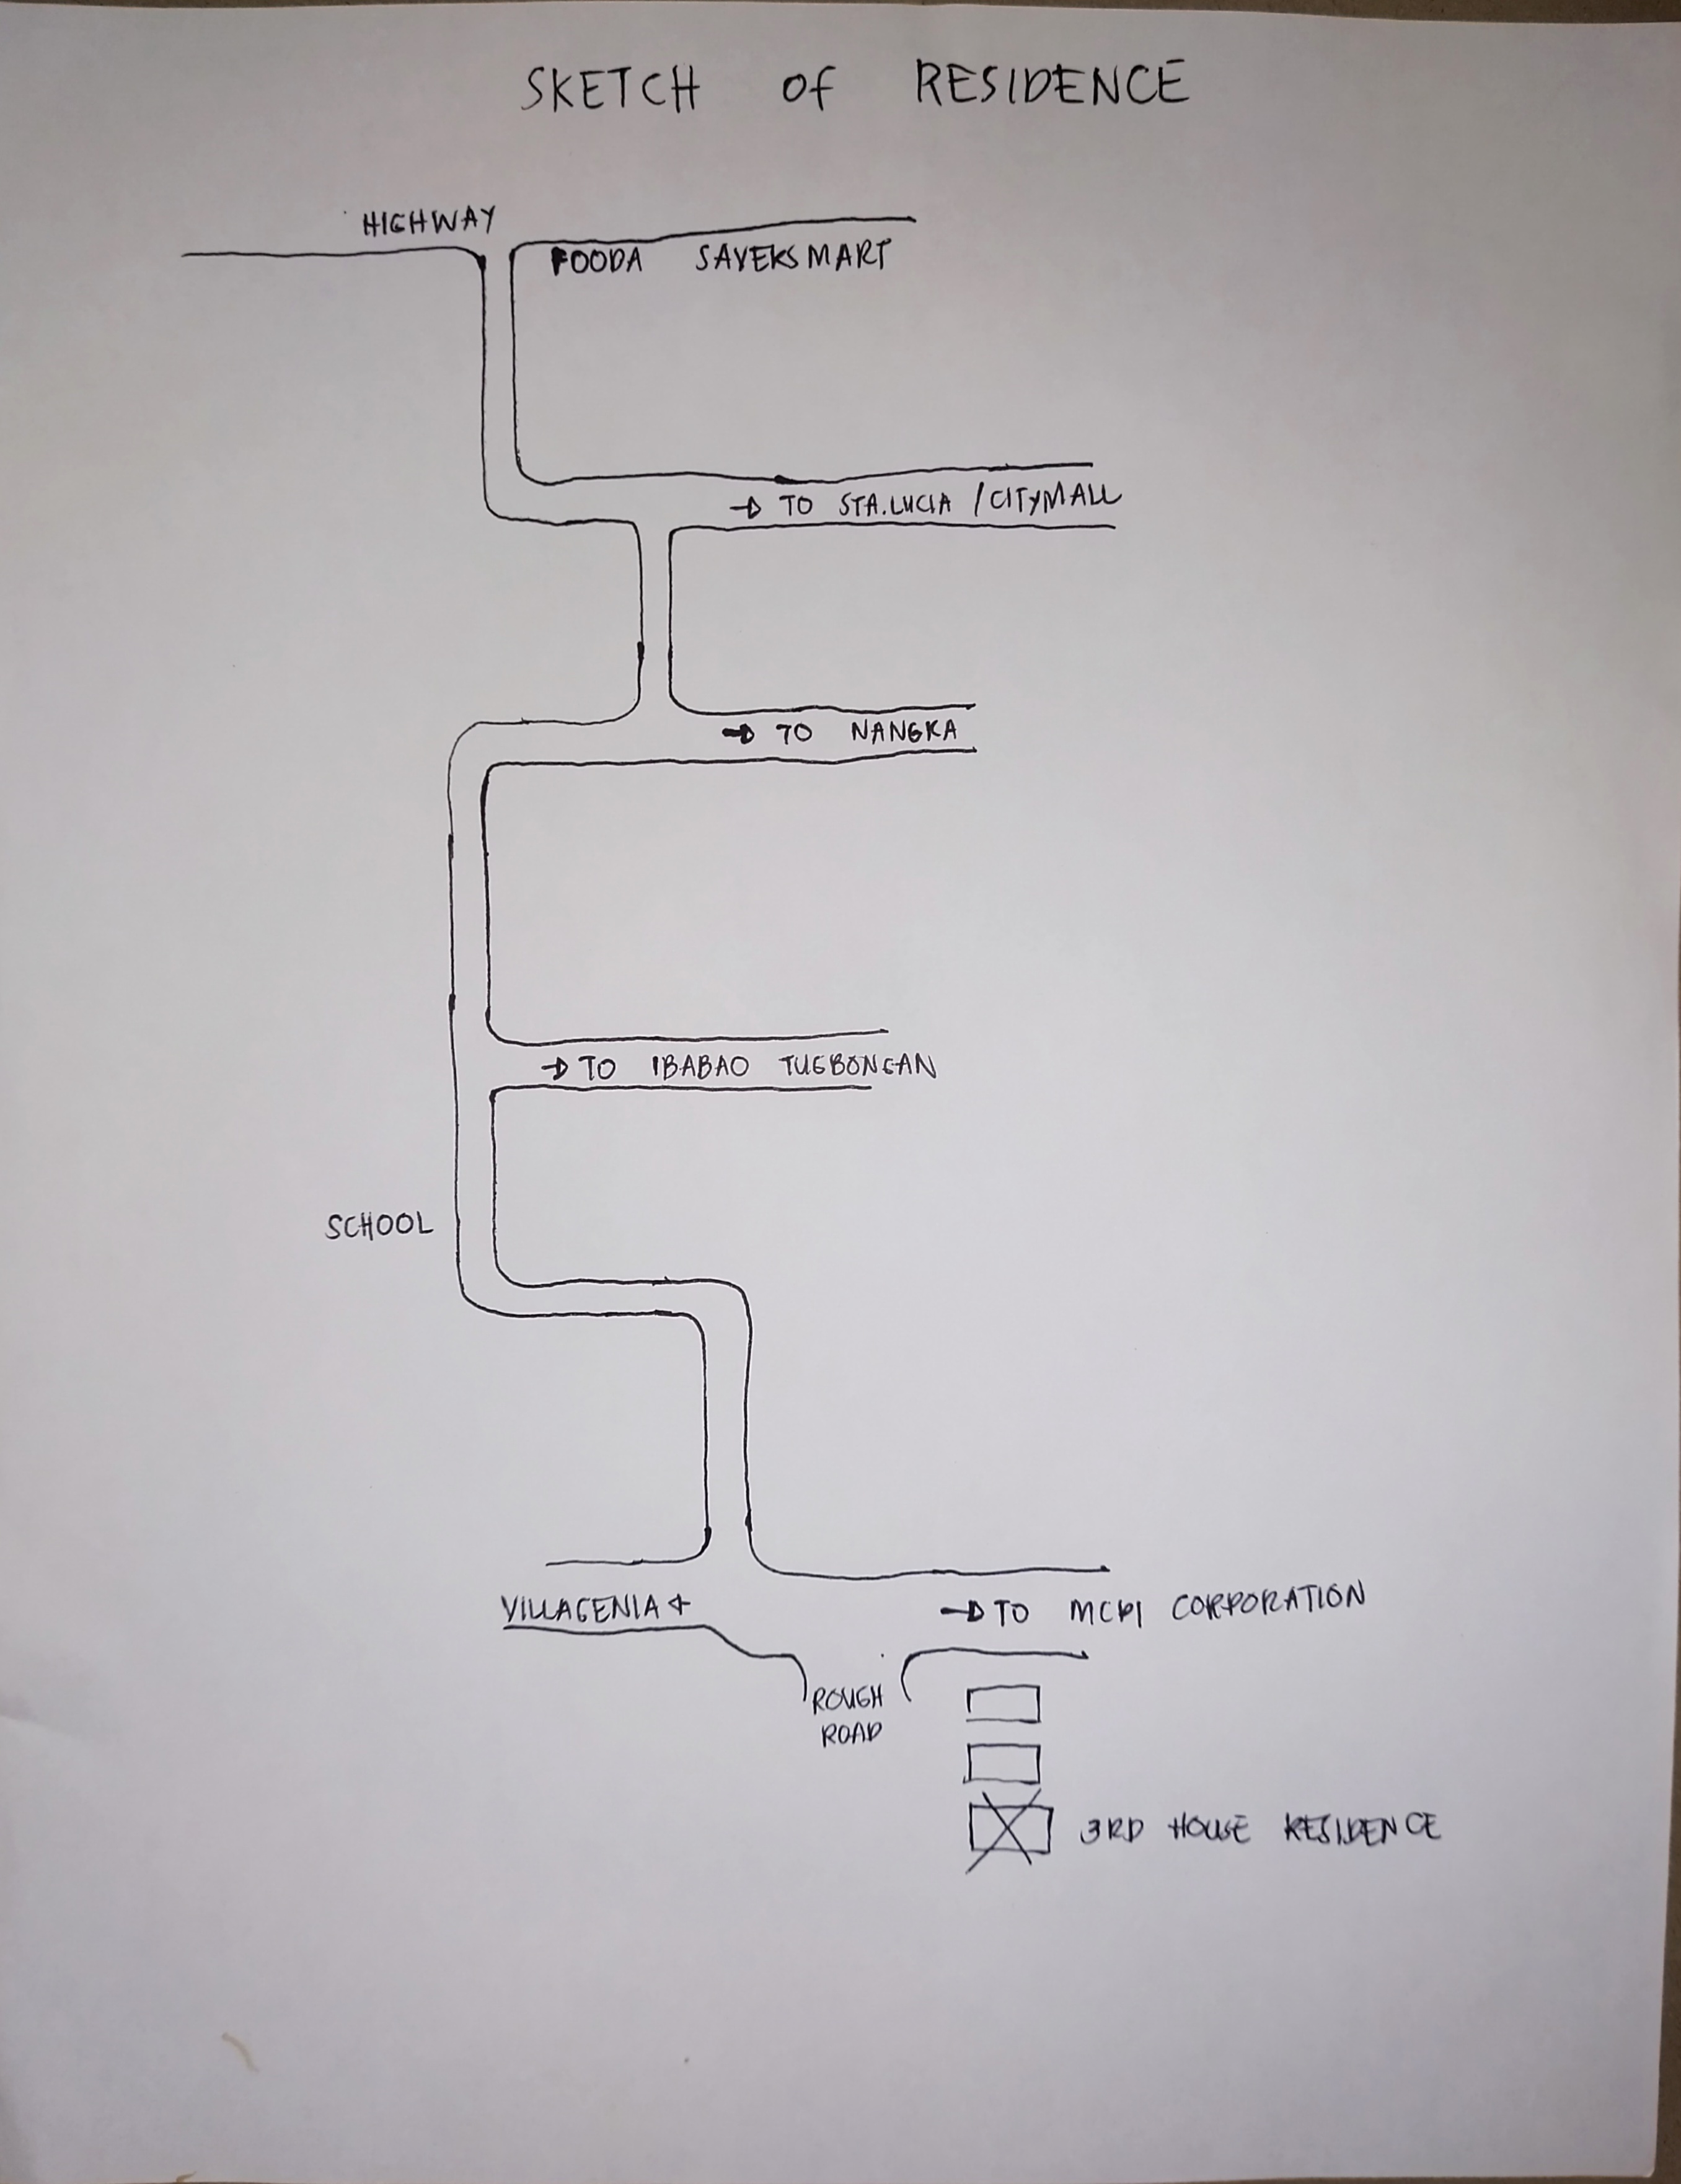 SKETCH of RESIDENCE
HIGHWAY
FOODA SAVERSMART
→ TO STA.LUCIA / CITYMALL
→ TO NANGKA
→ TO IBABAO TUGBONGAN
SCHOOL
VILLAGENIA
→ TO MCPI CORPORATION
ROUGH
ROAD
3RD HOUSE RESIDENCE